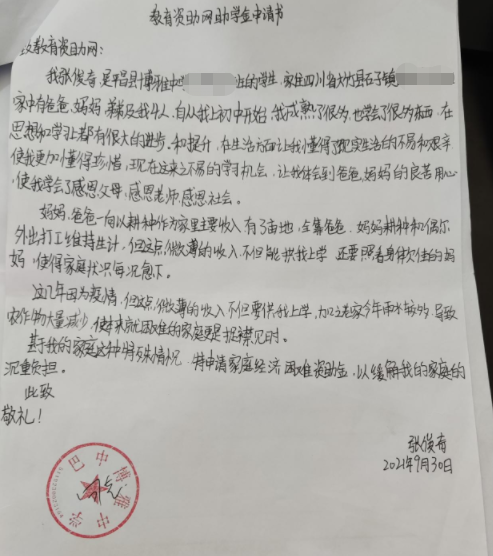 教育资助网助学金申请书
致教育资助网：
我张俊奇 是平昌县博雅中 班的学生 家住四川省大竹县石子镇
家中有爸爸、妈妈 我4人，自从我上初中开始，我成熟了很多，也学会了很多东西，在
思想和学习上都有很大的进步。和提升，在生活方面让我懂得了现实生活的不易和艰辛
使我更加懂得珍惜，现在这来之不易的学习机会，让我体会到爸爸，妈妈的良苦用心，
使我学会了感恩父母，感恩老师，感恩社会。
妈妈、爸爸一向以耕种作为家里主要收入有3亩地，全靠爸爸，妈妈耕种和偶尔
外出打工维持生计，但这点微薄的收入不但能供我上学，还要照看身体欠佳的妈
妈，使得家庭状况每况愈下。
这几年因为疫情，但这点微薄的收入不但要供我上学，加之老家今年雨水较多，导致
农作物大量减少，使本来就困难的家庭更是捉襟见肘。
基于我的家庭这种特殊情况，特申请家庭经济困难资助金，以缓解我的家庭的
沉重负担。
此致
敬礼！
张俊奇
2021年9月30日
巴中博雅中学